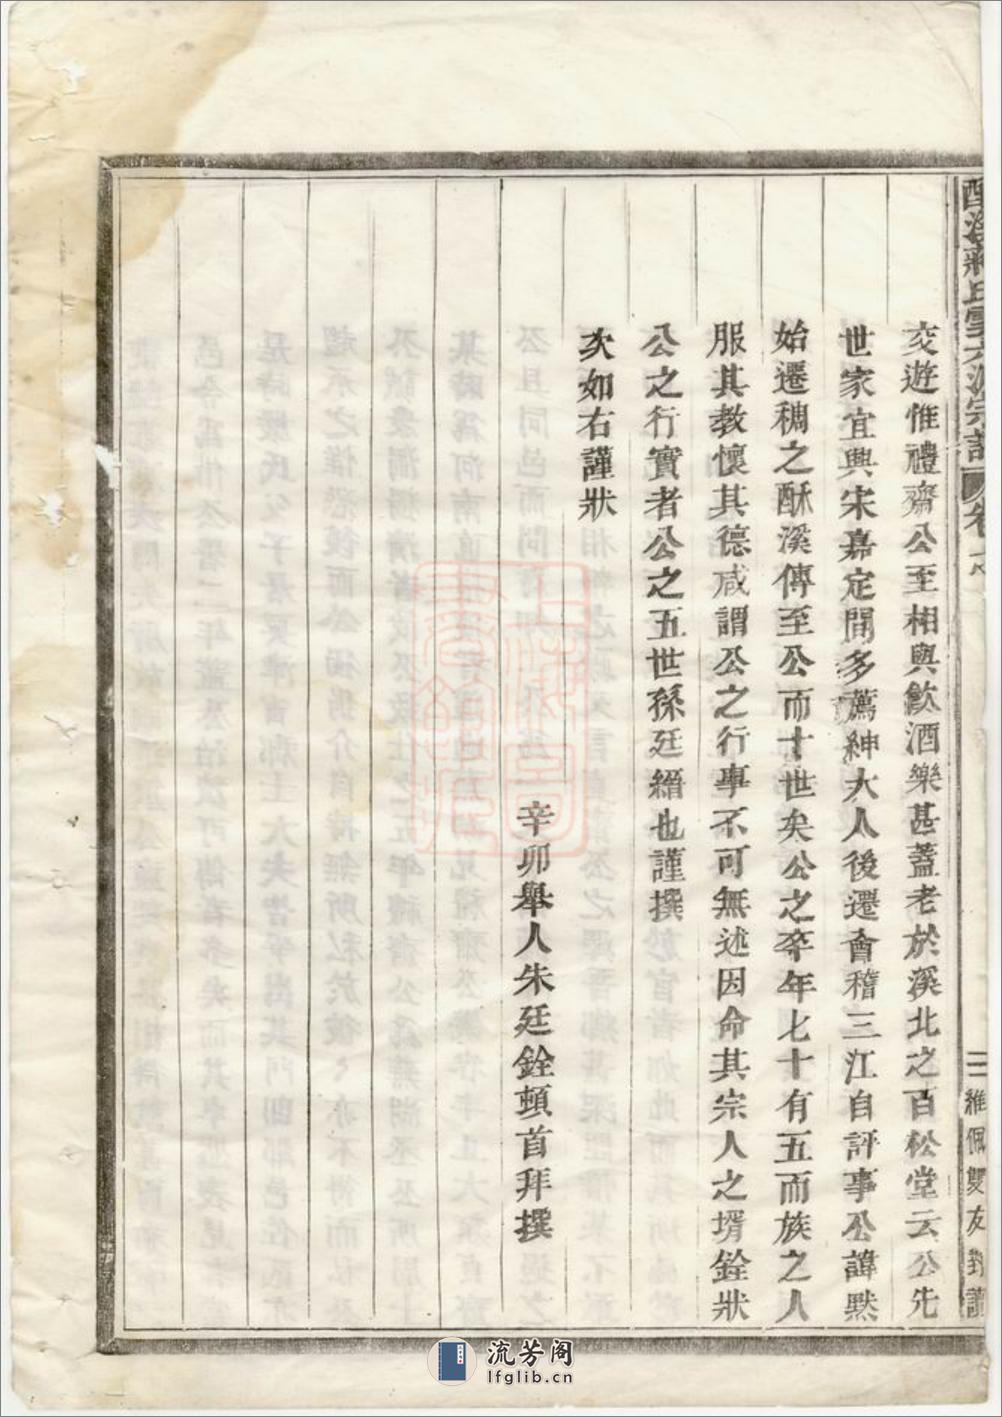 交遊惟禮齋公至相與飲酒樂甚蓋老於溪北之百松堂云公先
世家宜興宋嘉定間多薦紳大人後遷會稽三江自評事公諱熙
始遷稠之酥溪傳至公而十世矣公之卒年七十有五而族之人
服其教懷其德咸謂公之行事不可無述因命其宗人之壻銓狀
公之行實者公之五世孫廷縉也謹撰
次如右謹狀
辛卯舉人朱廷銓頓首拜撰
蔣氏 宗譜 卷之
三 維佩雙友對讀
流芳阁
lfglib.cn